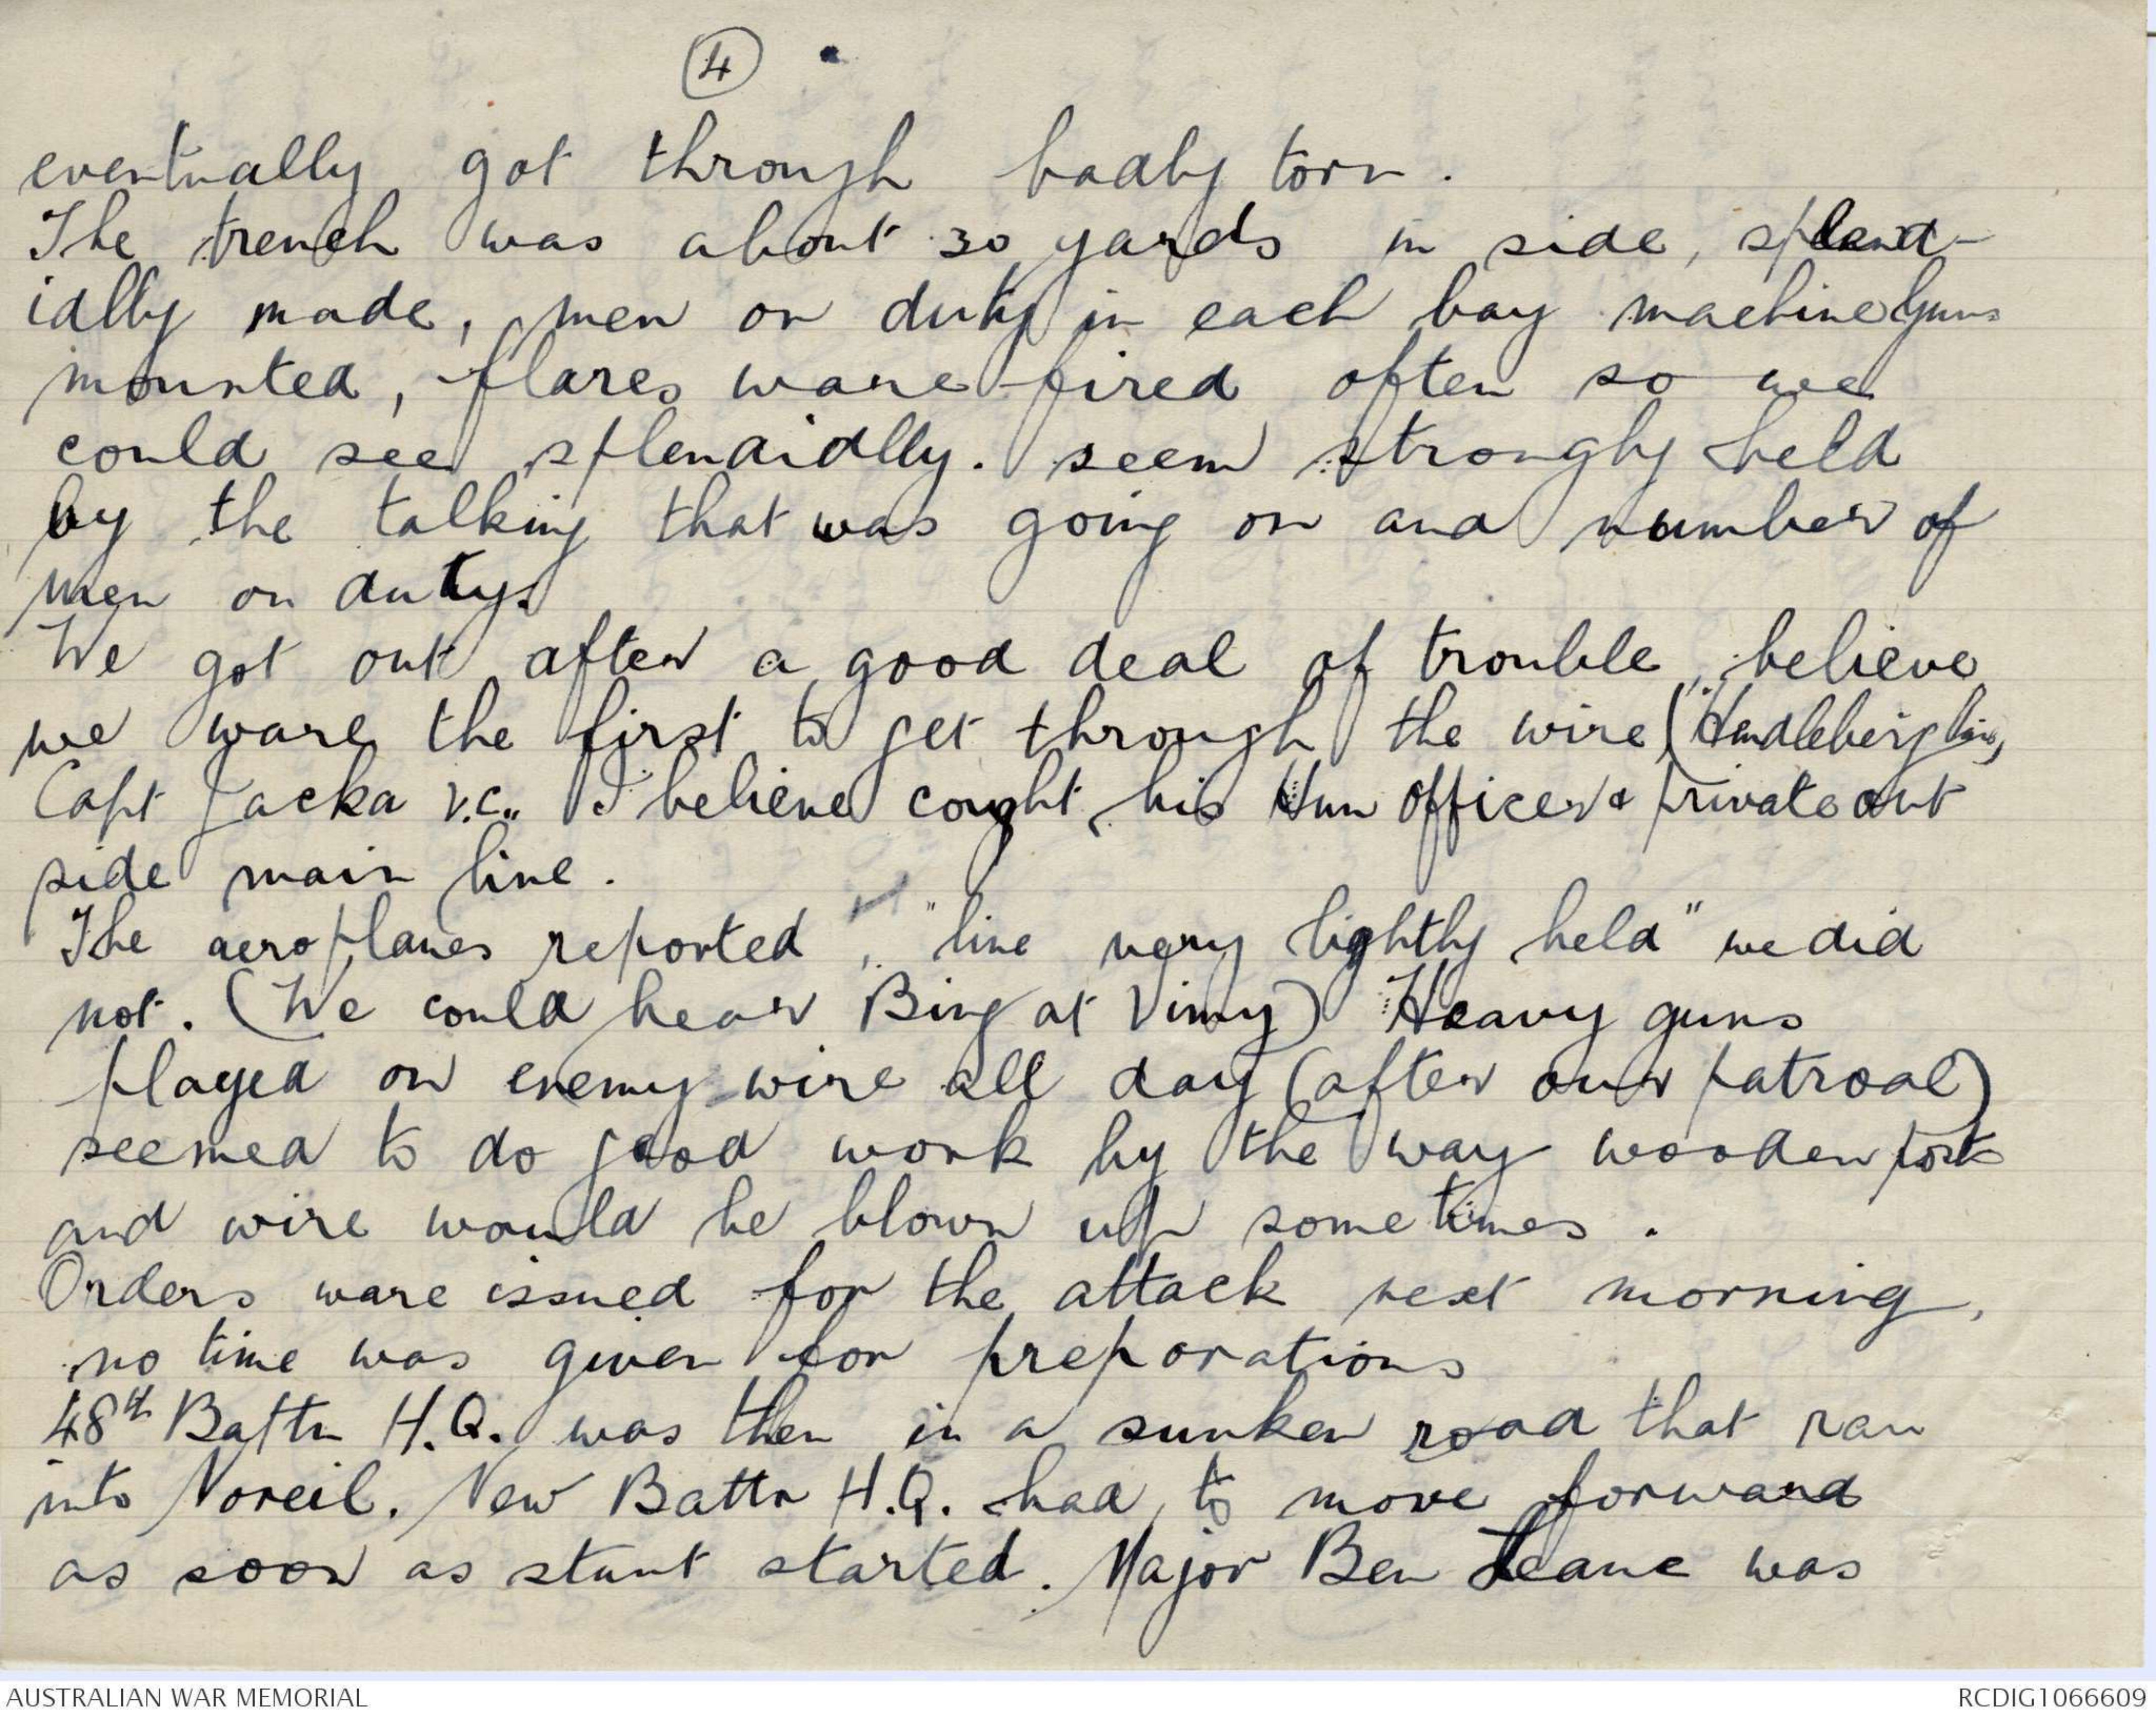 4
eventually got through badly torn.
The trench was about 30 yards in side, splend-
idlly made, men on duty in each bay machine guns
mounted, flares ware fired often so we
could see splendidlly. seem strongly held
by the talking that was going on and number of
men on duty.
We got out after a good deal of trouble, believe
we ware the first to get through the wire (Hendleberg line)
Capt Jacka V.C. I believe cought his Hun officer & private out
side main line.
The aeroplanes reported, "line very lightly held" we did
not. (We could hear Bing at Vimy) Heavy guns
played on enemy wire all day (after our patroal)
seemed to do good work by the way wooden posts
and wire would be blown up sometimes.
Orders ware issued for the attack next morning,
no time was given for preporations
48th Battn H.Q. was then in a sunken road that ran
into Noreil. New Battn H.Q. had to move forward
as soon as stunt started. Major Ben Leane was
AUSTRALIAN WAR MEMORIAL
RCDIG1066609